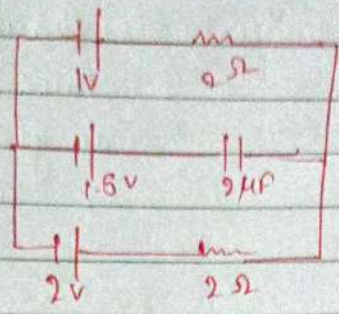 1V 2 Ω
1.5 V 2 μF
2 V 2 Ω